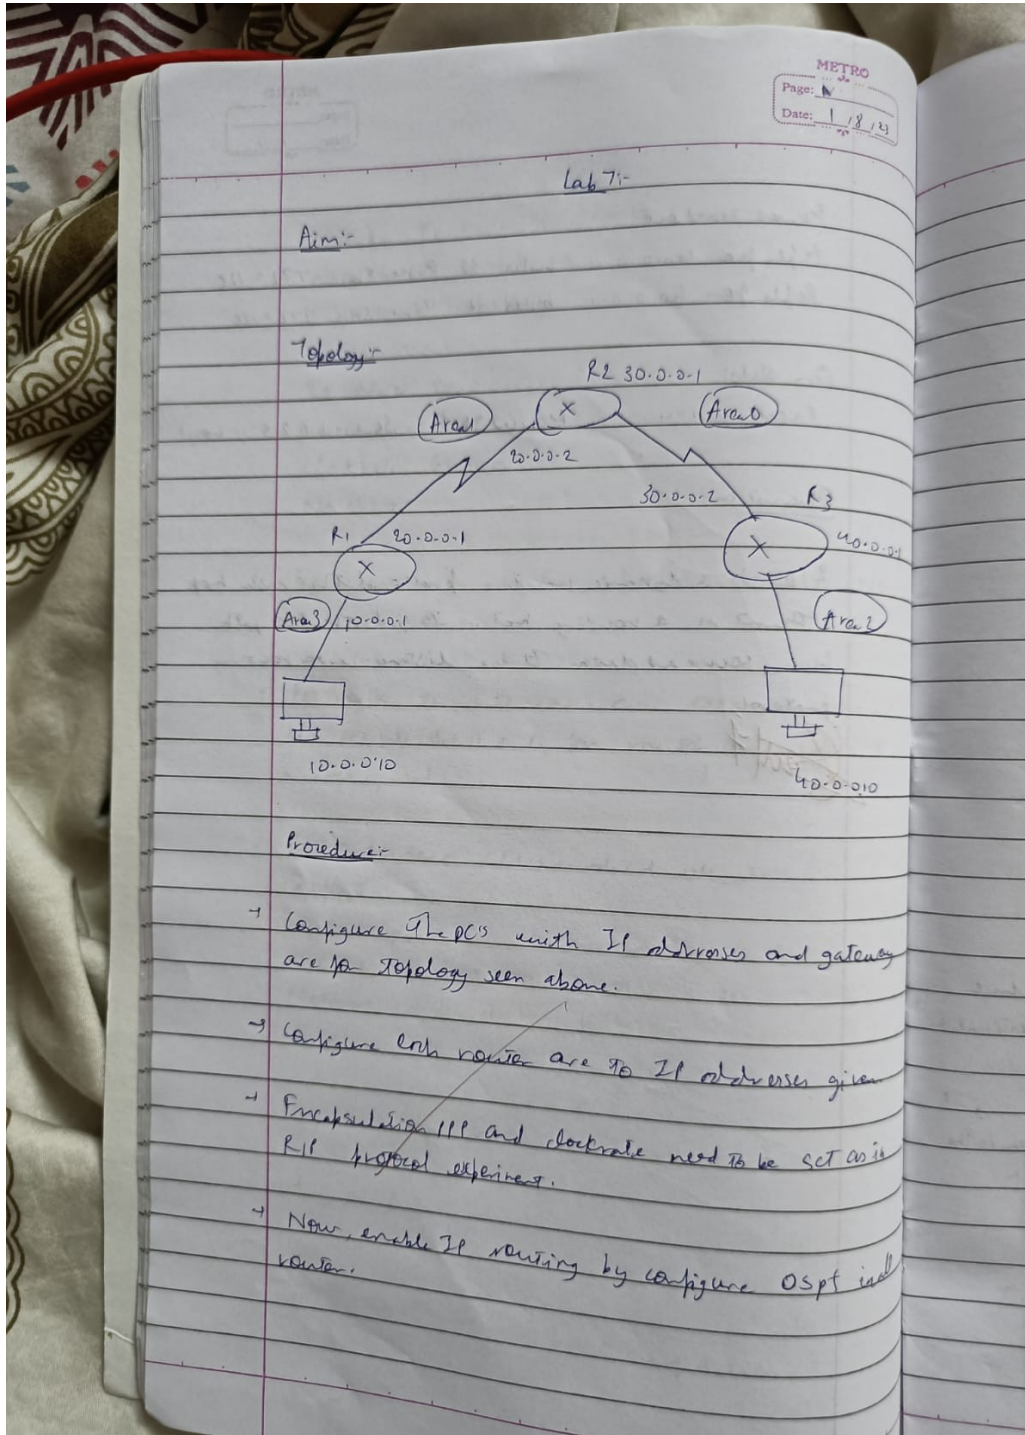 METRO
Page:
Date: 1/8/23
Lab 7:-
Aim:-
Topology:-
R2 30.0.0.1
Area1
X
Area0
20.0.0.2
30.0.0.2
R3
R1
20.0.0.1
X
40.0.0.1
X
Area3
10.0.0.1
Area2
10.0.0.10
40.0.0.10
Procedure:-
→ Configure The PC's with IP addresses and gateway
are per Topology seen above.
→ Configure each router are to IP addresses given
→ Encapsulation PPP and clockrate need to be set as in
RIP protocol experiment.
→ Now, enable IP routing by configure OSPf in all
router.